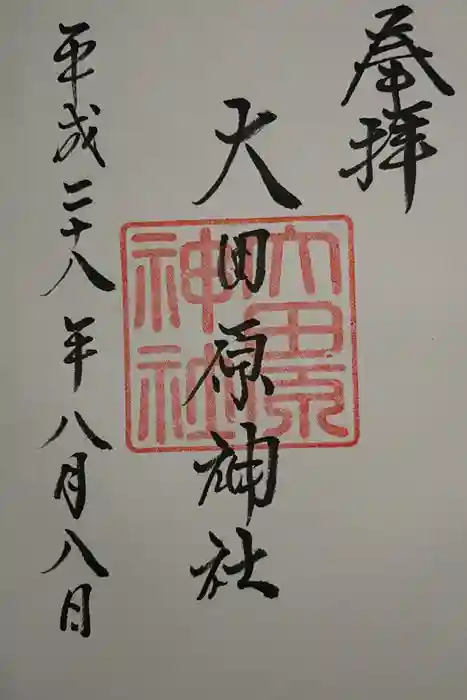 奉拝
大田原神社
大田原神社
平成二十八年八月八日